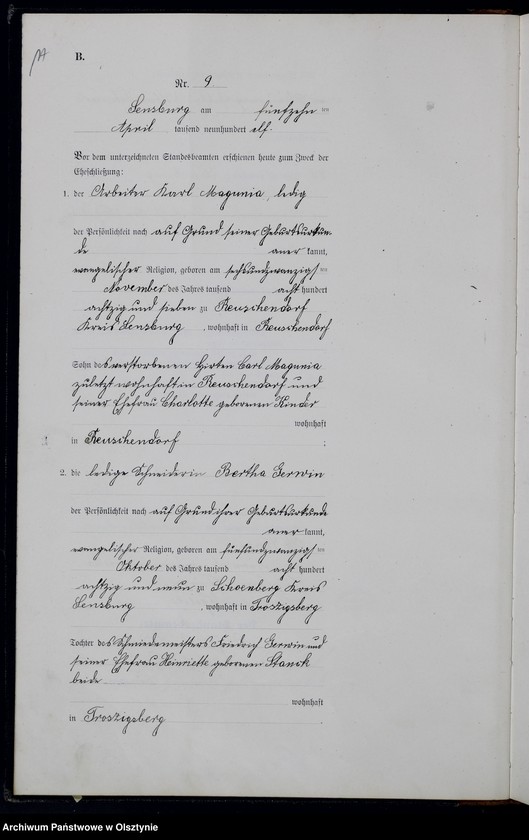 B.
Nr. 9
Sensburg am fünfzehn ten
April tausend neunhundert elf.
Vor dem unterzeichneten Standesbeamten erschienen heute zum Zweck der
Eheschließung:
1. der Arbeiter Karl Magunia, ledig
der Persönlichkeit nach auf Grund seiner Geburtsurkun-
de aner kannt,
evangelischer Religion, geboren am sechsundzwanzigs ten
November des Jahres tausend acht hundert
achtzig und sieben zu Reuschendorf
Kreis Sensburg, wohnhaft in Reuschendorf
Sohn des verstorbenen Hirten Carl Magunia
zuletzt wohnhaft in Reuschendorf und
seiner Ehefrau Charlotte geborenen Kinder
wohnhaft
in Reuschendorf ;
2. die ledige Schneiderin Bertha Gerwin
der Persönlichkeit nach auf Grund ihrer Geburtsurkunde
aner kannt,
evangelischer Religion, geboren am fünfundzwanzigs ten
Oktober des Jahres tausend acht hundert
achtzig und neun zu Schoenberg Kreis
Sensburg, wohnhaft in Troszigsberg
Tochter des Schmiedemeisters Friedrich Gerwin und
seiner Ehefrau Heinriette geborenen Stanck
beide
wohnhaft
in Troszigsberg
Archiwum Państwowe w Olsztynie